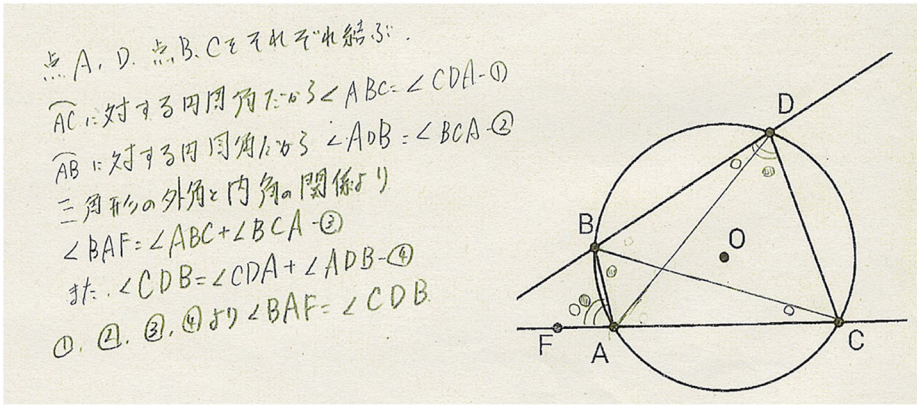 点A、D、点B、Cをそれぞれ結ぶ.
⌒ACに対する円周角だから∠ABC=∠CDA-①
⌒ABに対する円周角だから∠ADB=∠BCA-②
三角形の外角と内角の関係より
∠BAF=∠ABC+∠BCA-③
また、∠CDB=∠CDA+∠ADB-④
①、②、③、④より∠BAF=∠CDB
D
B
O
F
A
C